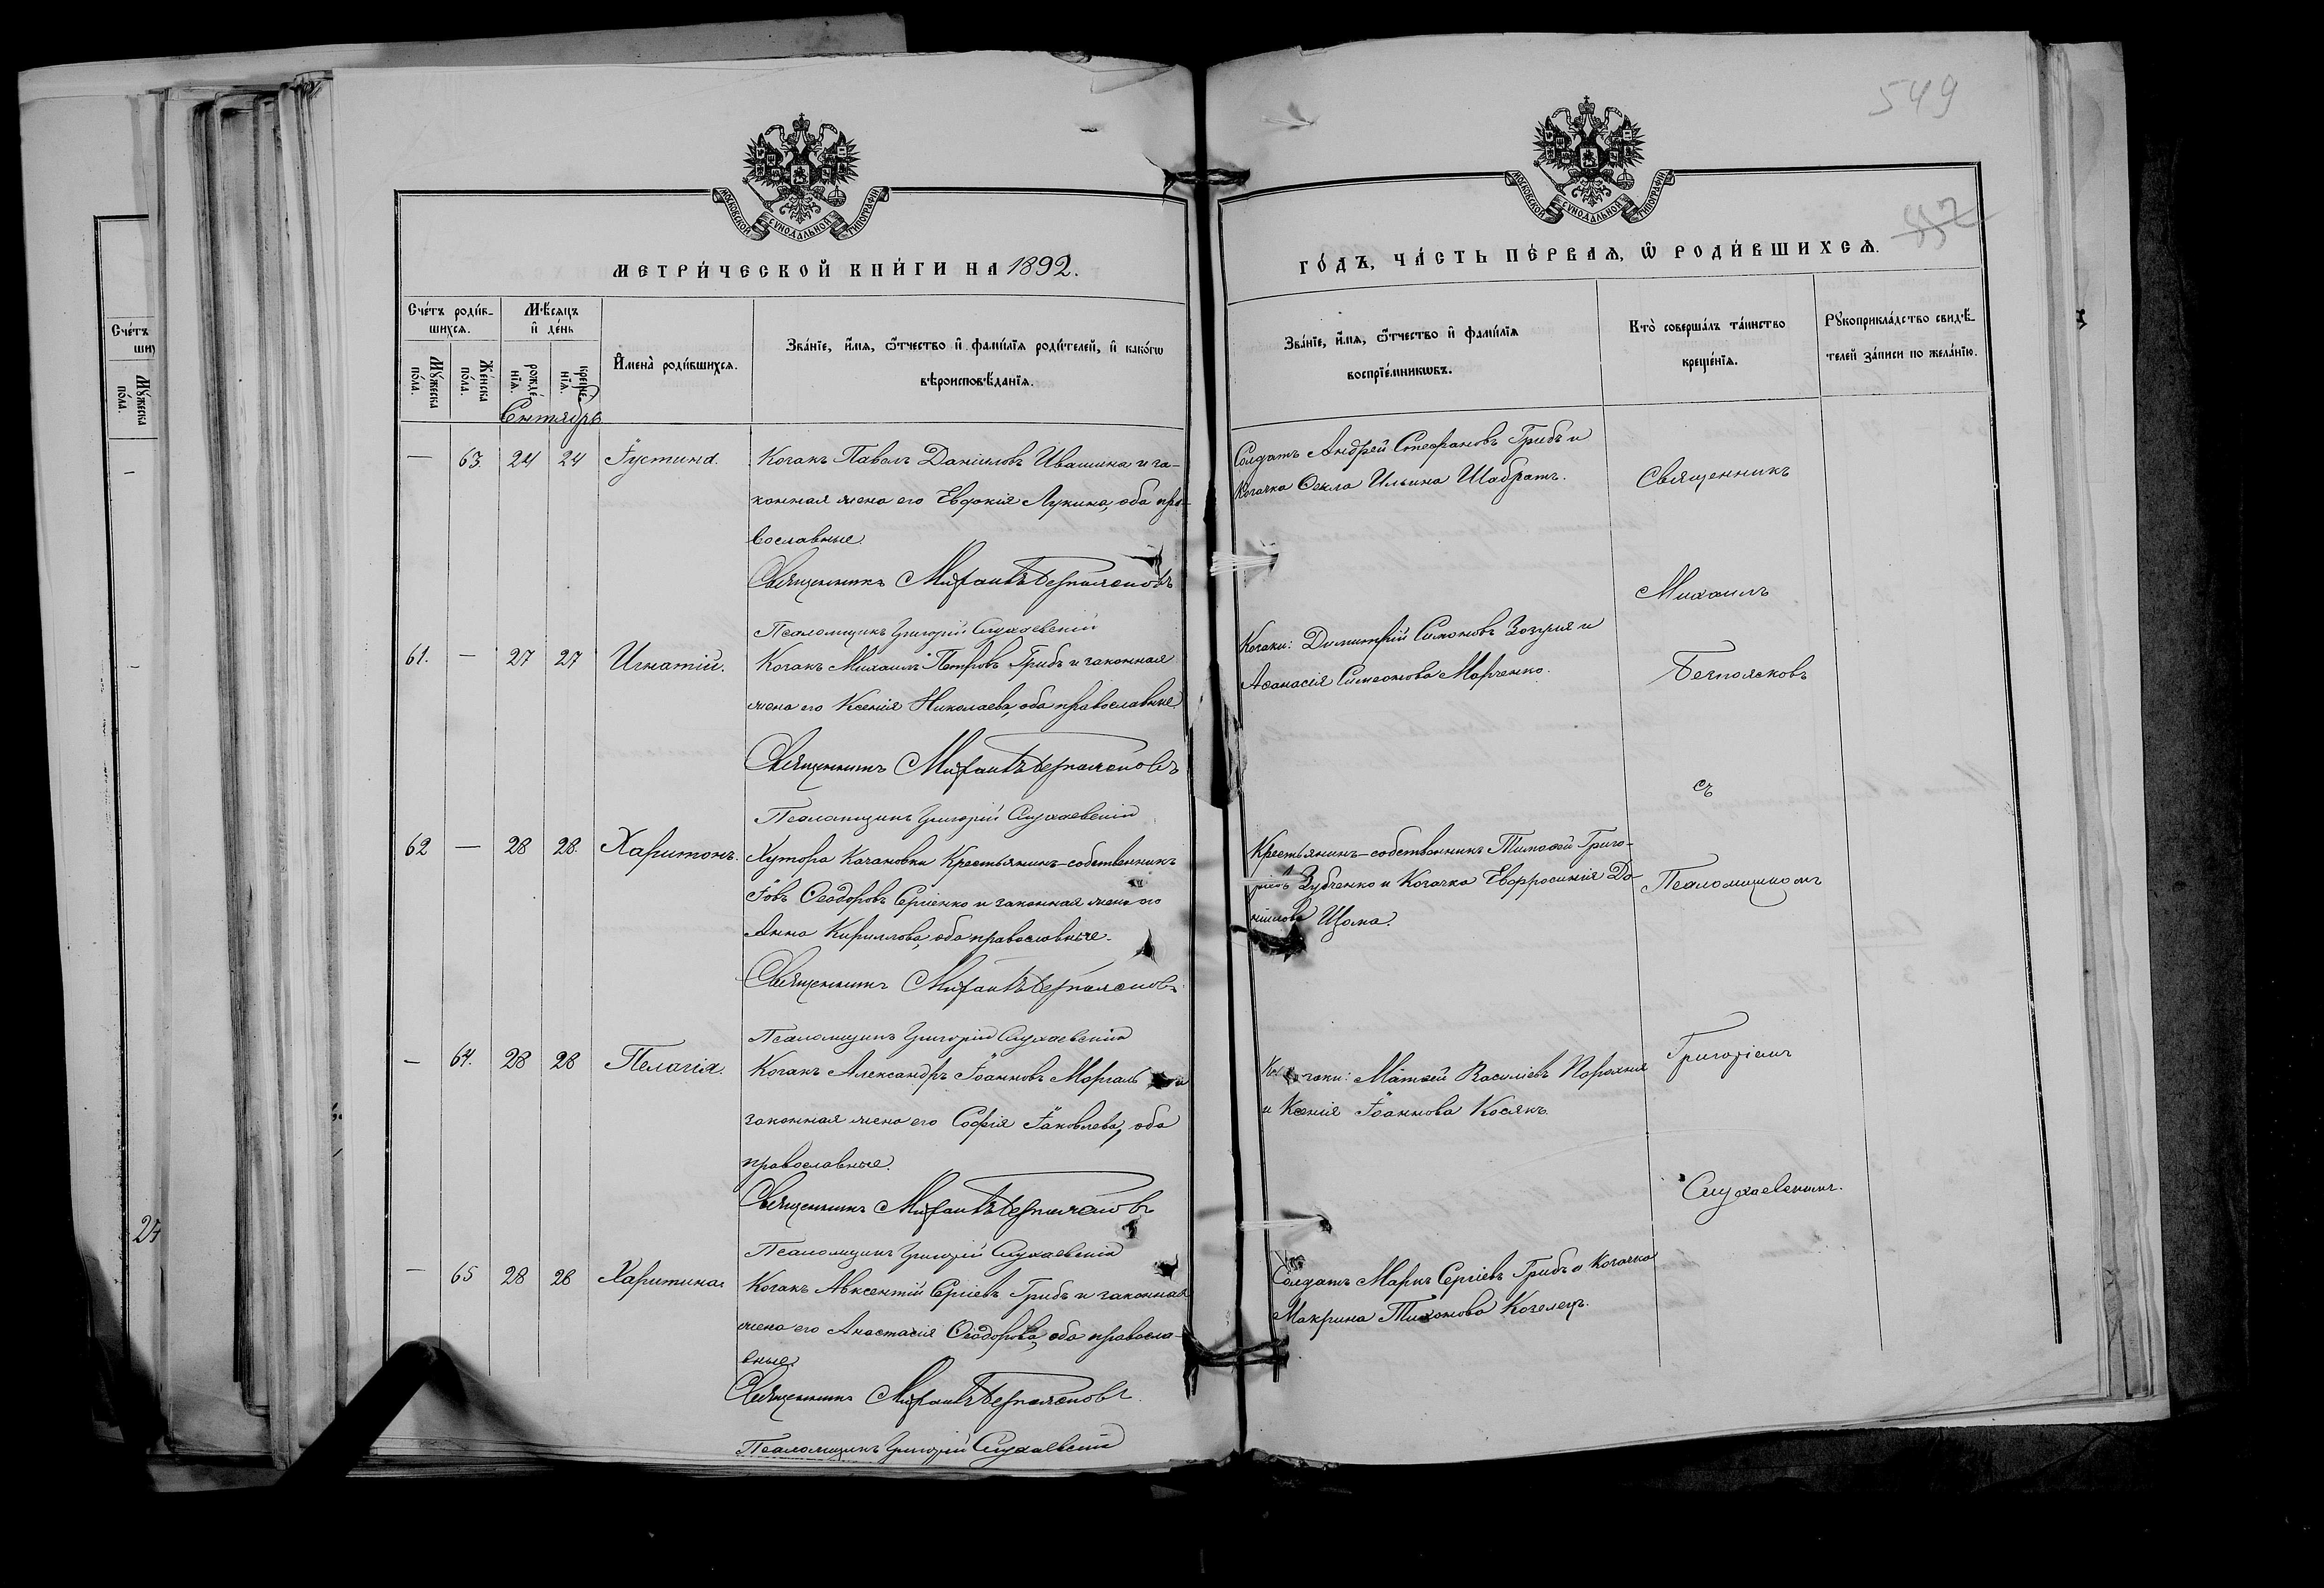 549
557
МОСКОВСКОЙ СѴНОДАЛЬНОЙ ТИПОГРАФІИ
МОСКОВСКОЙ СѴНОДАЛЬНОЙ ТИПОГРАФІИ
МЕТРИ́ЧЕСКОЙ КНИ́ГИ НА 1892.
ГО́ДЪ, ЧА́СТЬ ПЕ́РВАѦ, Ѿ РОДИ́ВШИХСѦ.
Сче́тъ роди́в-
шихсѧ.
Мꙋ́жеска по́ла.
Же́нска по́ла.
Мѣ́сѧцъ
и҆ де́нь
рожде́нїѧ.
креще́нїѧ.
И҆мена̀ роди́вшихсѧ.
Зва́нїе, и҆́мѧ, ѻ҆́тчество и҆ фами́лїѧ роди́телей, и҆ како́гѡ
вѣроисповѣ́данїѧ.
Зва́нїе, и҆́мѧ, ѻ҆́тчество и҆ фами́лїѧ
воспрїе́мникѡвъ.
Кто̀ соверша́лъ та́инство
креще́нїѧ.
Рꙋкоприкла́дство свидѣ́-
телей за́писи по жела́нїю.
Сентябрь
— 63. 24 24 Іустина.
Козакъ Павелъ Даніиловъ Ивашина и за-
конная жена его Евдокія Лукина, оба пра-
вославные.
Священникъ Михаилъ Безпоясковъ
Псаломщикъ Григорій Слухаевскій
Солдатъ Андрей Стефановъ Грибъ и
Козачка Ѳекла Ильина Шабратъ.
Священникъ
Михаилъ
61. — 27 27 Игнатій.
Козакъ Михаилъ Петровъ Грибъ и законная
жена его Ксенія Николаева, оба православные.
Священникъ Михаилъ Безпоясковъ
Псаломщикъ Григорій Слухаевскій
Козаки: Димитрій Симоновъ Зозуля и
Аѳанасія Симеонова Марченко.
Безпоясковъ
съ
62 — 28 28. Харитонъ.
Хутора Качановки Крестьянинъ-собственникъ
Іовъ Ѳеодоровъ Сергіенко и законная жена его
Анна Кириллова, оба православные.
Священникъ Михаилъ Безпоясковъ
Псаломщикъ Григорій Слухаевскій
Крестьянинъ-собственникъ Тимоѳей Григо-
ріевъ Зубченко и Козачка Евфросинія Да-
ніилова Щома.
Псаломщикомъ
— 64. 28 28 Пелагія.
Козакъ Александръ Іоанновъ Моргаль и
законная жена его Софія Іаковлева, оба
православные.
Священникъ Михаилъ Безпоясковъ
Псаломщикъ Григорій Слухаевскій
Козаки: Матѳей Василіевъ Порохня
и Ксенія Іоаннова Косякъ.
Григоріемъ
Слухаевскимъ.
— 65 28 28 Харитина.
Козакъ Авксентій Сергіевъ Грибъ и законная
жена его Анастасія Ѳеодорова, оба правосла-
вные.
Священникъ Михаилъ Безпоясковъ
Псаломщикъ Григорій Слухаевскій
Солдатъ Маркъ Сергіевъ Грибъ и Козачка
Макрина Тихонова Козелецъ.